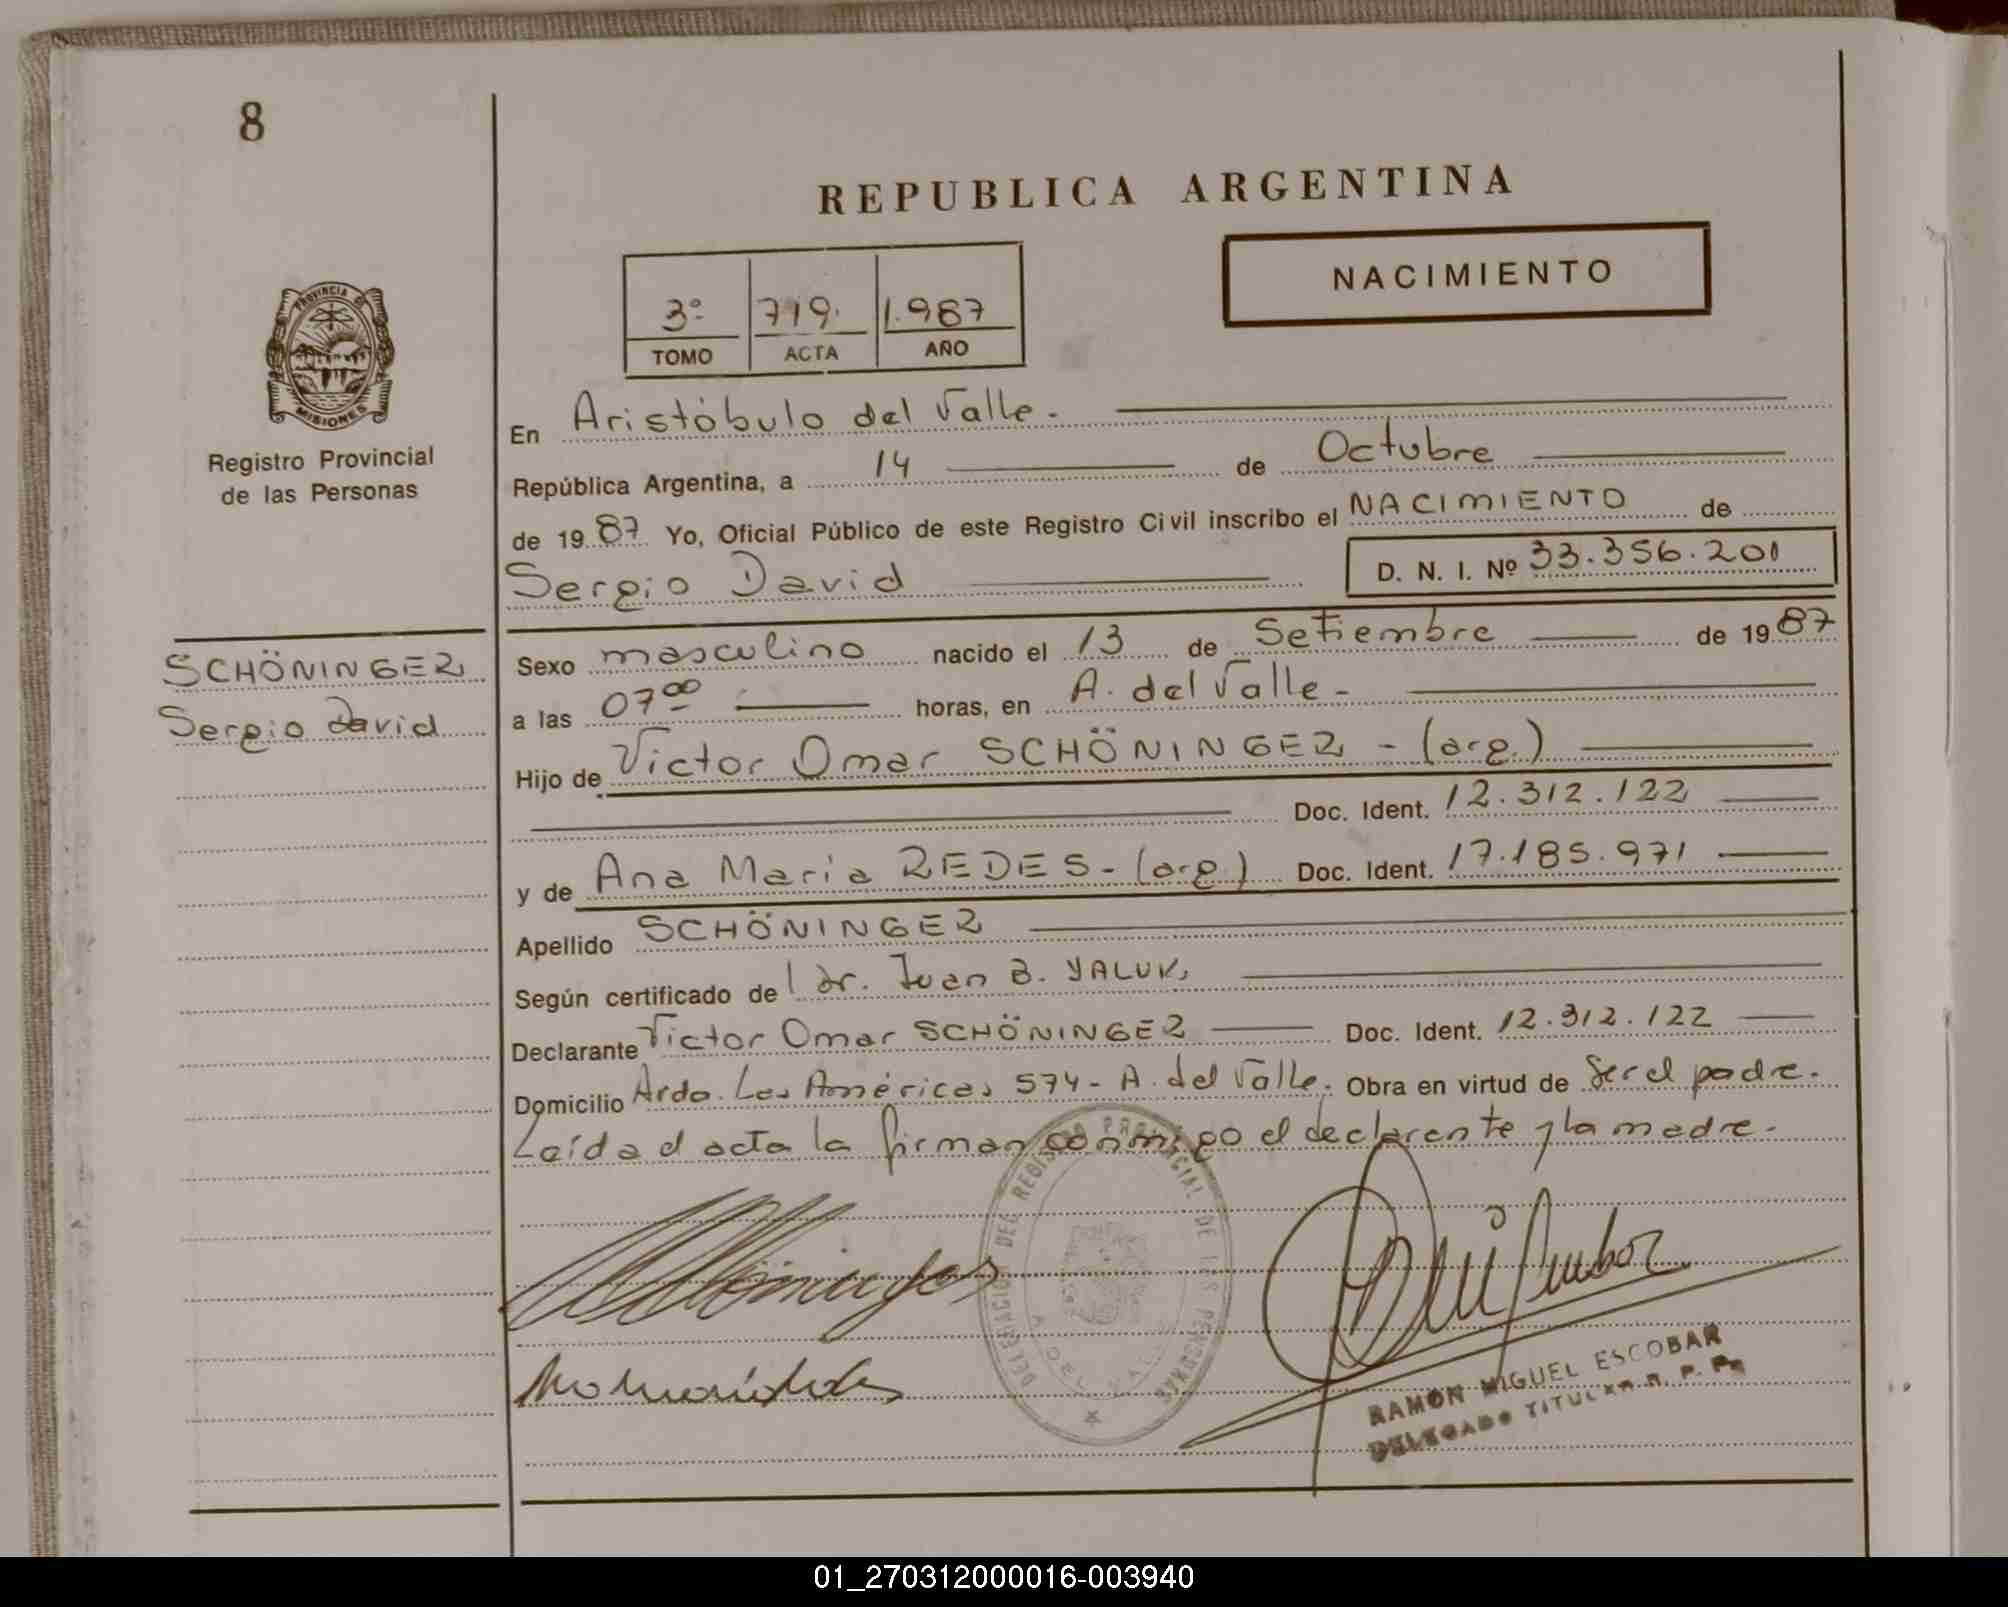 8
REPUBLICA ARGENTINA
NACIMIENTO
3º 719. 1.987
TOMO ACTA AÑO
PROVINCIA DE
MISIONES
Registro Provincial
de las Personas
SCHÖNINGER
Sergio David
En Aristóbulo del Valle.
República Argentina, a 14 de Octubre
de 19 87 Yo, Oficial Público de este Registro Civil inscribo el NACIMIENTO de
Sergio David D. N. I. Nº 33.356.201
Sexo masculino nacido el 13 de Setiembre de 19 87
a las 07 00 horas, en A. del Valle -
Hijo de Victor Omar SCHÖNINGER - (arg.)
Doc. Ident. 12.312.122
y de Ana Maria REDES - (arg) Doc. Ident. 17.185.971
Apellido SCHÖNINGER
Según certificado de Dr. Juan B. YALUK
Declarante Victor Omar SCHÖNINGER Doc. Ident. 12.312.122
Domicilio Avda. Las Américas 574 - A. del Valle. Obra en virtud de Ser el padre.
Leída el acta la firman conmigo el declarante y la madre.
DELEGACION DEL REGISTRO PROVINCIAL DE LAS PERSONAS
A. DEL VALLE
RAMON MIGUEL ESCOBAR
DELEGADO TITULAR R. P. P.
01_270312000016-003940